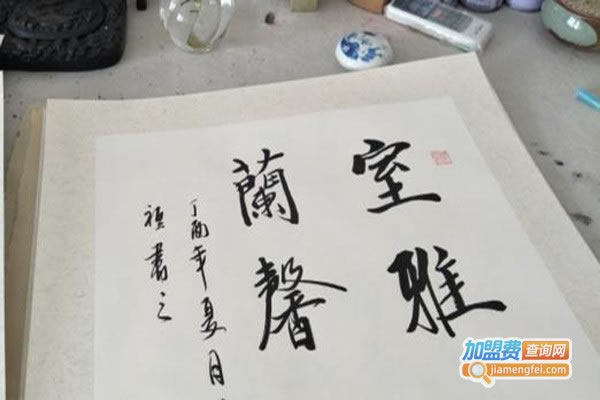 室雅
蘭馨
丁酉年夏月
祖書之
加盟费查询网
jiamengfei.com